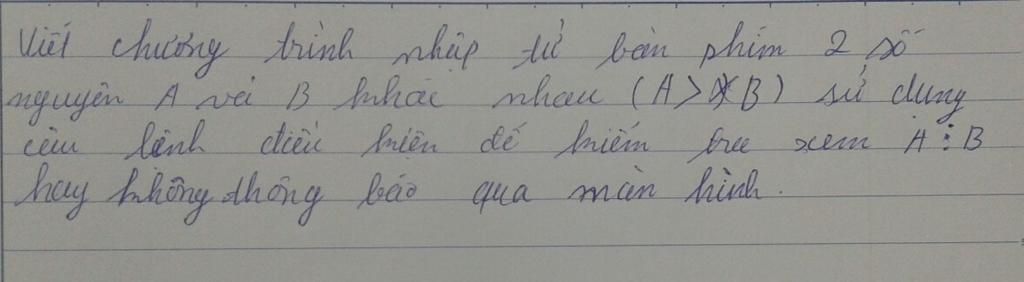 Viết chương trình nhập từ bàn phím 2 số
nguyên A và B khác nhau (A > B) sử dụng
câu lệnh điều kiện để kiểm tra xem A ⋮ B
hay không thông báo qua màn hình.